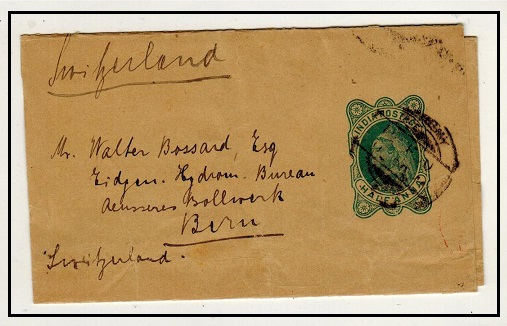 Switzerland
INDIA POSTAGE
HALF ANNA
Mr. Walter Bossard, Esq
Eidgen. Hydrom. Bureau
Aeusseres Bollwerk
Bern
Switzerland.